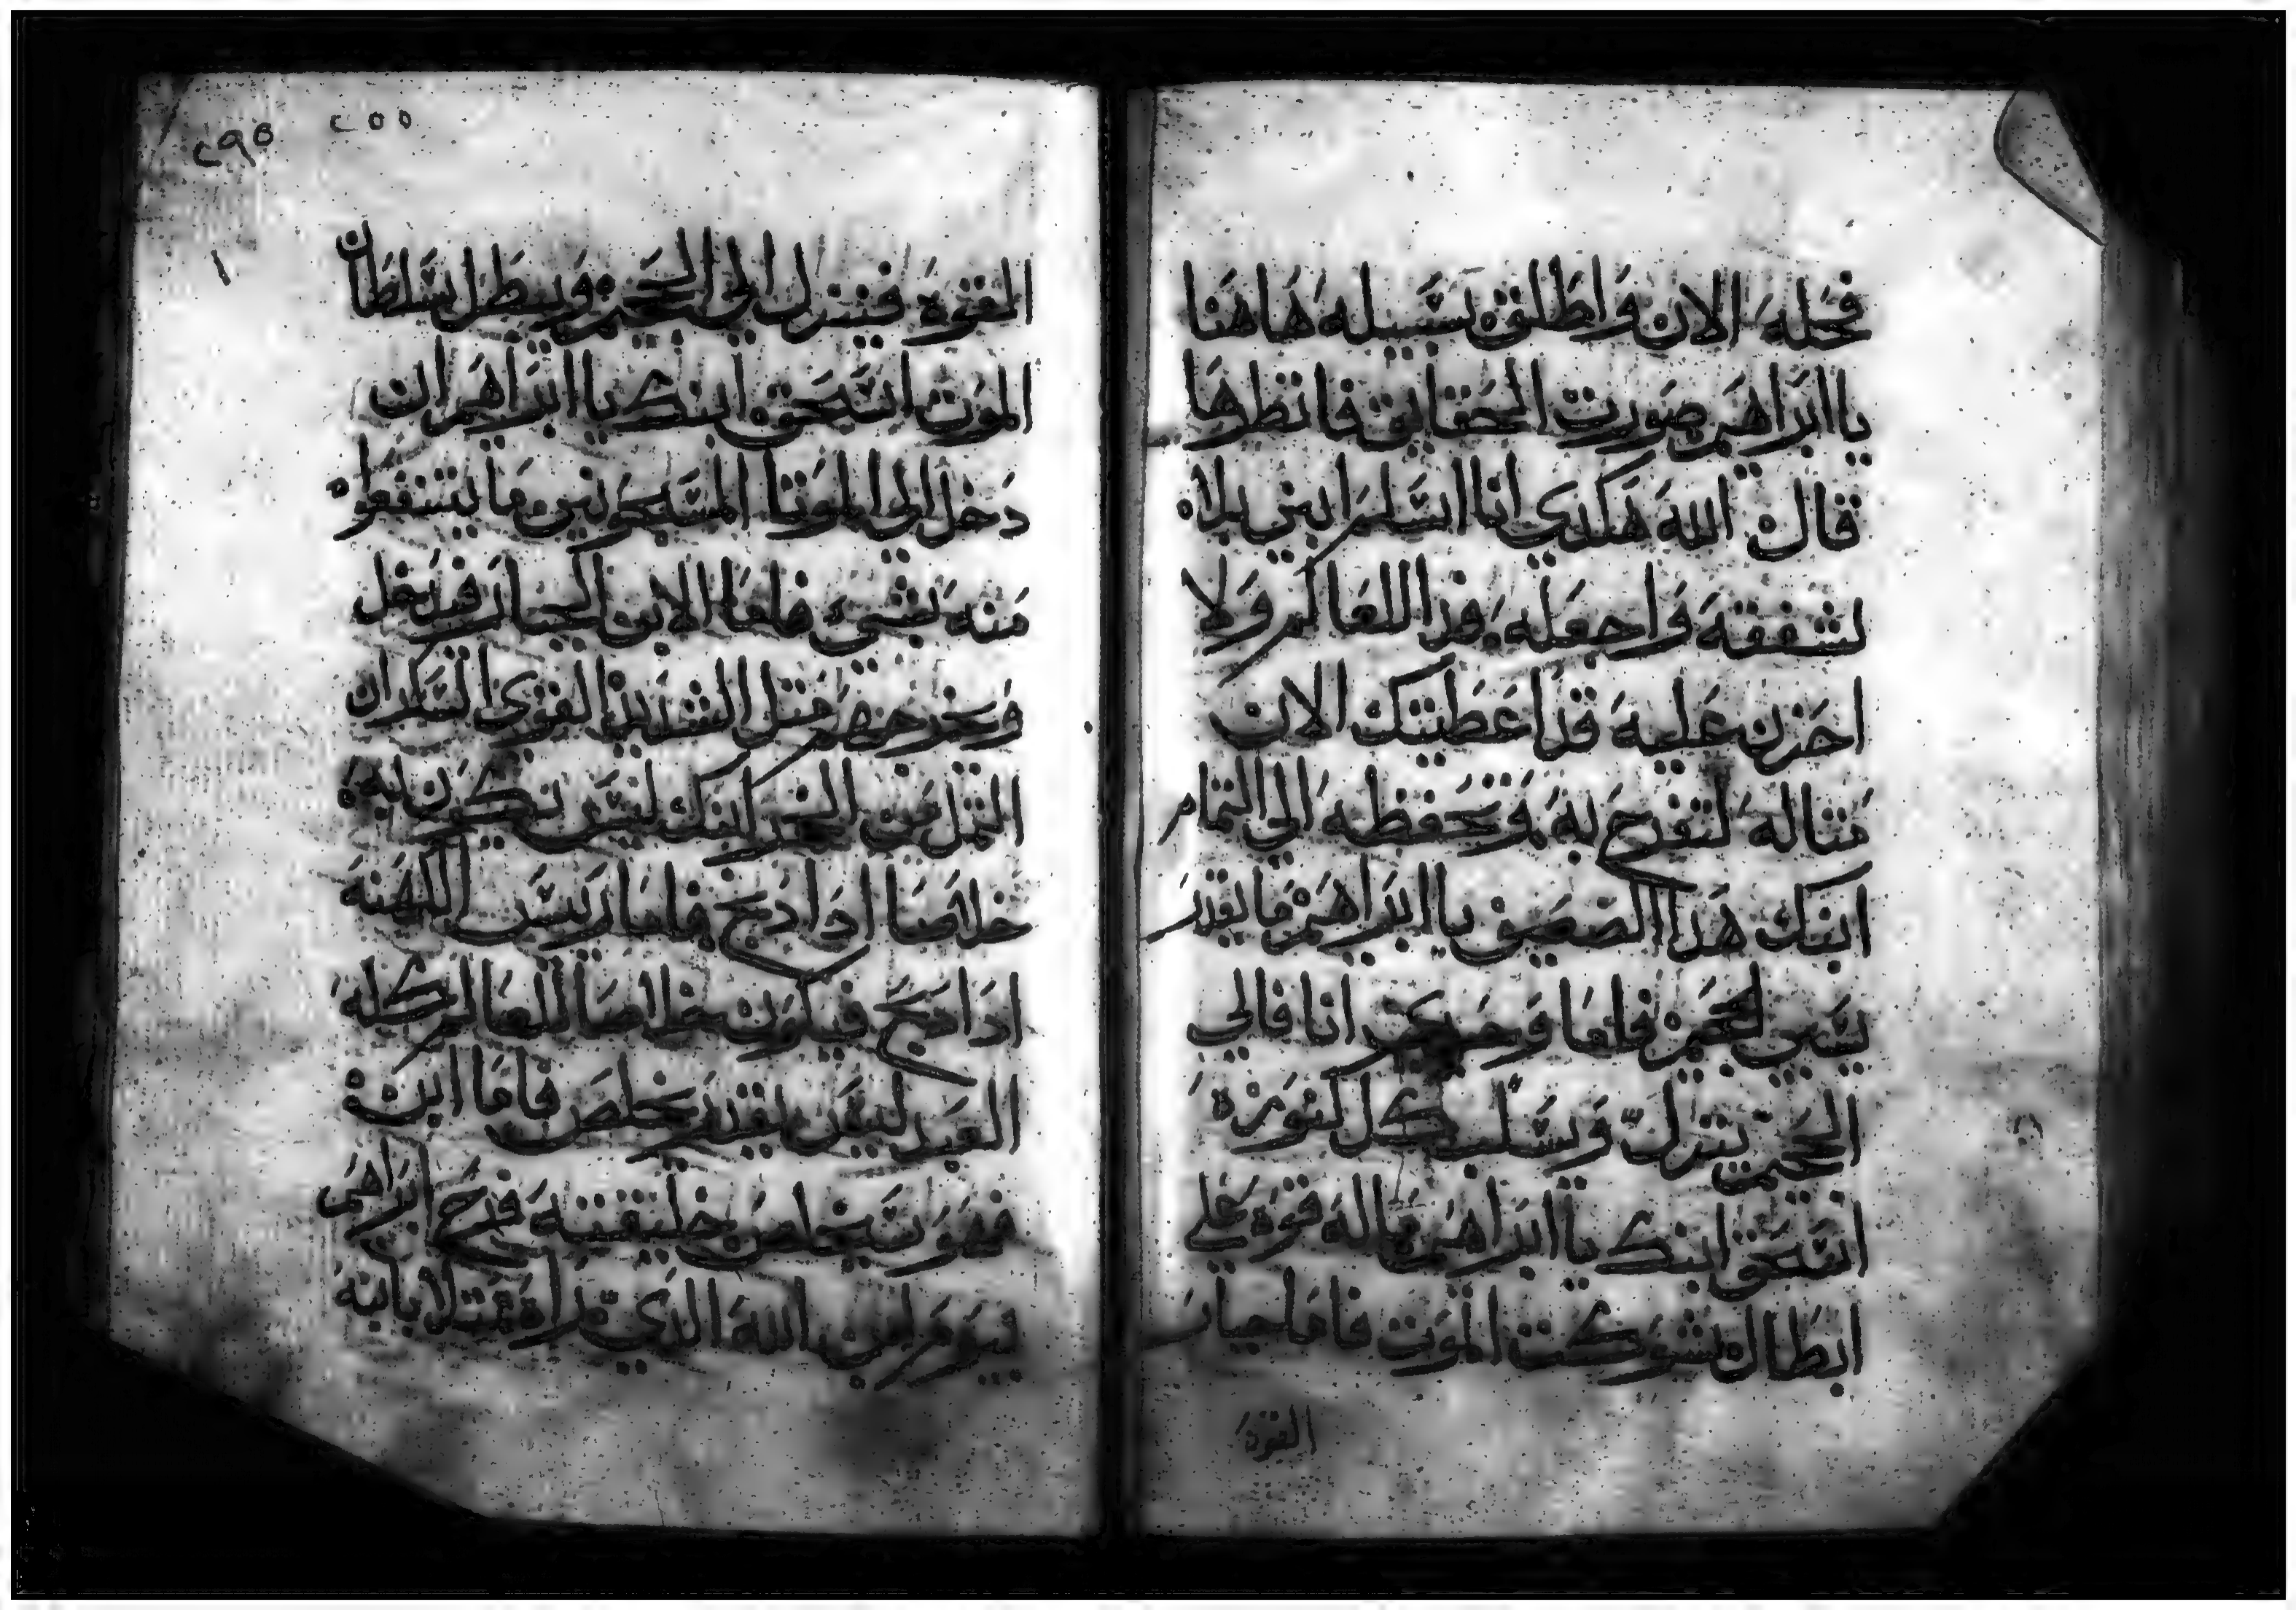 فحله الان واطلق سبيله هاهنا
يا ابراهيم صورت الحقايق فانظرها
قال الله هكدي انا اسلم ابني بلا
شفقه واجعله فدا للعالم ولا
احزن عليه قد اعطيتك الان
مثاله لتفرح به وتحفظه الي التمام
ابنك هدا الضعيف يا ابراهيم ما يقدر
يسبي الجحيم فاما وحيدي انا فالي
الجحيم ينزل ويسلب كل كنوزه
اسحق ابنك يا ابراهيم ماله قوه علي
ابطال شوكت الموت فاما جبار
القوة
٢٩٥
٢٥٥
القوة فينزل الي الجحيم ويبطل سلطان
الموت اسحق ابنك يا ابراهيم ان
دخل الي الموتا المسجونين ما ينتفعوا
منه بشيء فاما الابن الجبار فيدخل
ويخرجهم مثل الشديد القوي السكران
الثمل من الخمر ابنك ليس تكون به
خلاصا ادا دبح فاما رييس الكهنه
ادا دبح فيكون خلاصا للعالم كله
العبد ليس يقدر يخلص فاما ابن
فهو سيخلص خليقته فرح ابراهيم
بيوم ابن الله الدي راه ممثلا بابنه